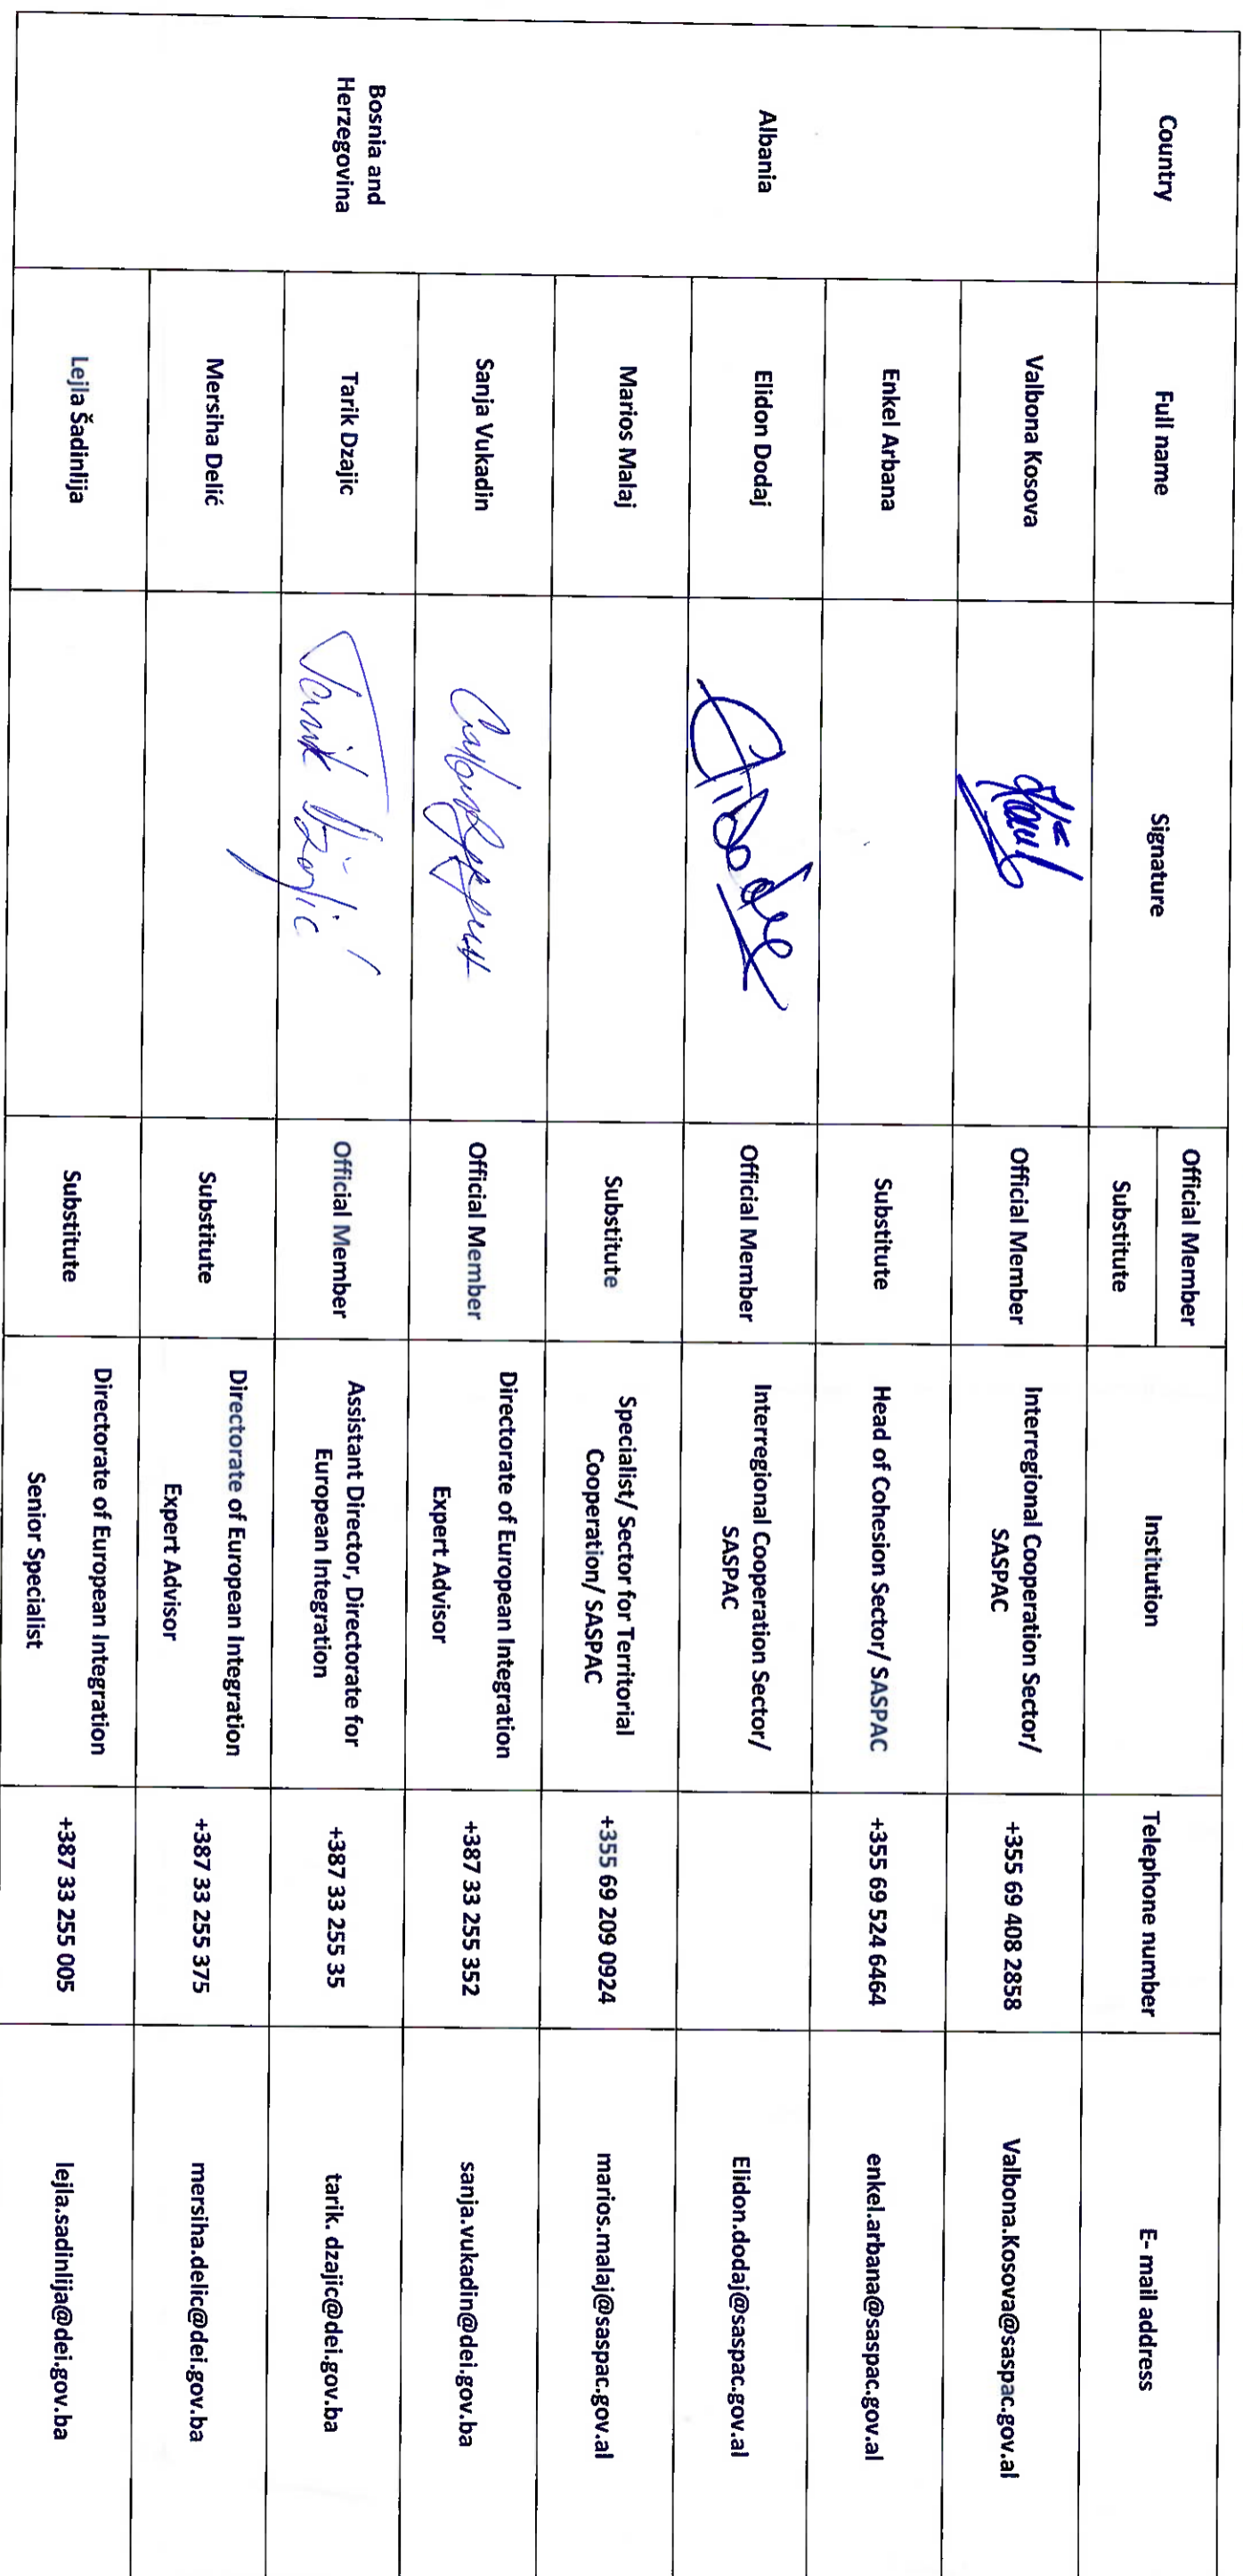 Country
Full name
Signature
Official Member
Substitute
Institution
Telephone number
E- mail address
Albania
Valbona Kosova
Official Member
Interregional Cooperation Sector/
SASPAC
+355 69 408 2858
Valbona.Kosova@saspac.gov.al
Enkel Arbana
Substitute
Head of Cohesion Sector/ SASPAC
+355 69 524 6464
enkel.arbana@saspac.gov.al
Elidon Dodaj
Official Member
Interregional Cooperation Sector/
SASPAC
Elidon.dodaj@saspac.gov.al
Marios Malaj
Substitute
Specialist/ Sector for Territorial
Cooperation/ SASPAC
+355 69 209 0924
marios.malaj@saspac.gov.al
Bosnia and
Herzegovina
Sanja Vukadin
Official Member
Directorate of European Integration
Expert Advisor
+387 33 255 352
sanja.vukadin@dei.gov.ba
Tarik Dzajic
Tarik Džajić
Official Member
Assistant Director, Directorate for
European Integration
+387 33 255 35
tarik. dzajic@dei.gov.ba
Mersiha Delić
Substitute
Directorate of European Integration
Expert Advisor
+387 33 255 375
mersiha.delic@dei.gov.ba
Lejla Šadinlija
Substitute
Directorate of European Integration
Senior Specialist
+387 33 255 005
lejla.sadinlija@dei.gov.ba